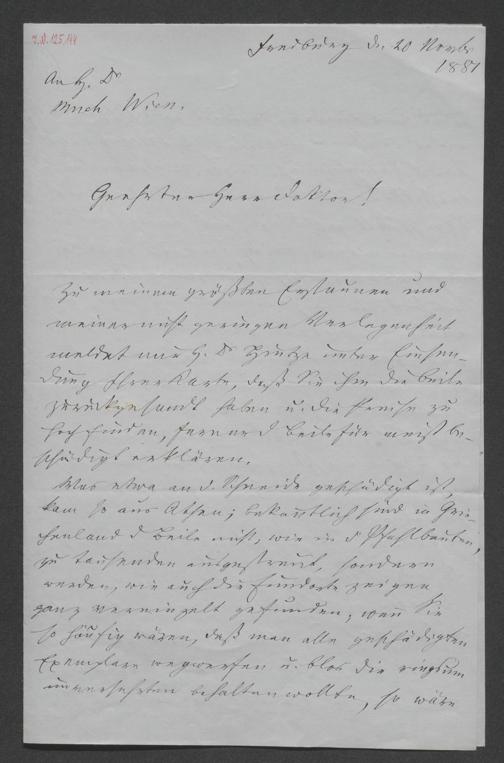 Freiburg d. 20 Novbr
1881
An H. Dr
Much Wien.
Geehrter Herr Doktor!
Zu meinem größten Erstaunen und
meiner nicht geringen Verlegenheit
meldet mir H. Dr Hintze unter Einsen-
dung Ihrer Karte, daß Sie ihm die Beile
zurückgesandt haben u. die Preise zu
hoch finden, ferner d Beile für meist be-
schädigt erklären.
Was etwa an d. Schneide geschädigt ist,
kam so aus Athen; bekanntlich sind in Grie-
chenland d Beile nicht, wie in d Pfahlbauten,
zu tausenden ausgestreut, sondern
werden, wie auch die Fundorte zeigen
ganz vereinzelt gefunden; wenn Sie
so häufig wären, daß man alle geschädigten
Exemplare wegwerfen u. blos die ringsum
unversehrten behalten wollte, so wäre